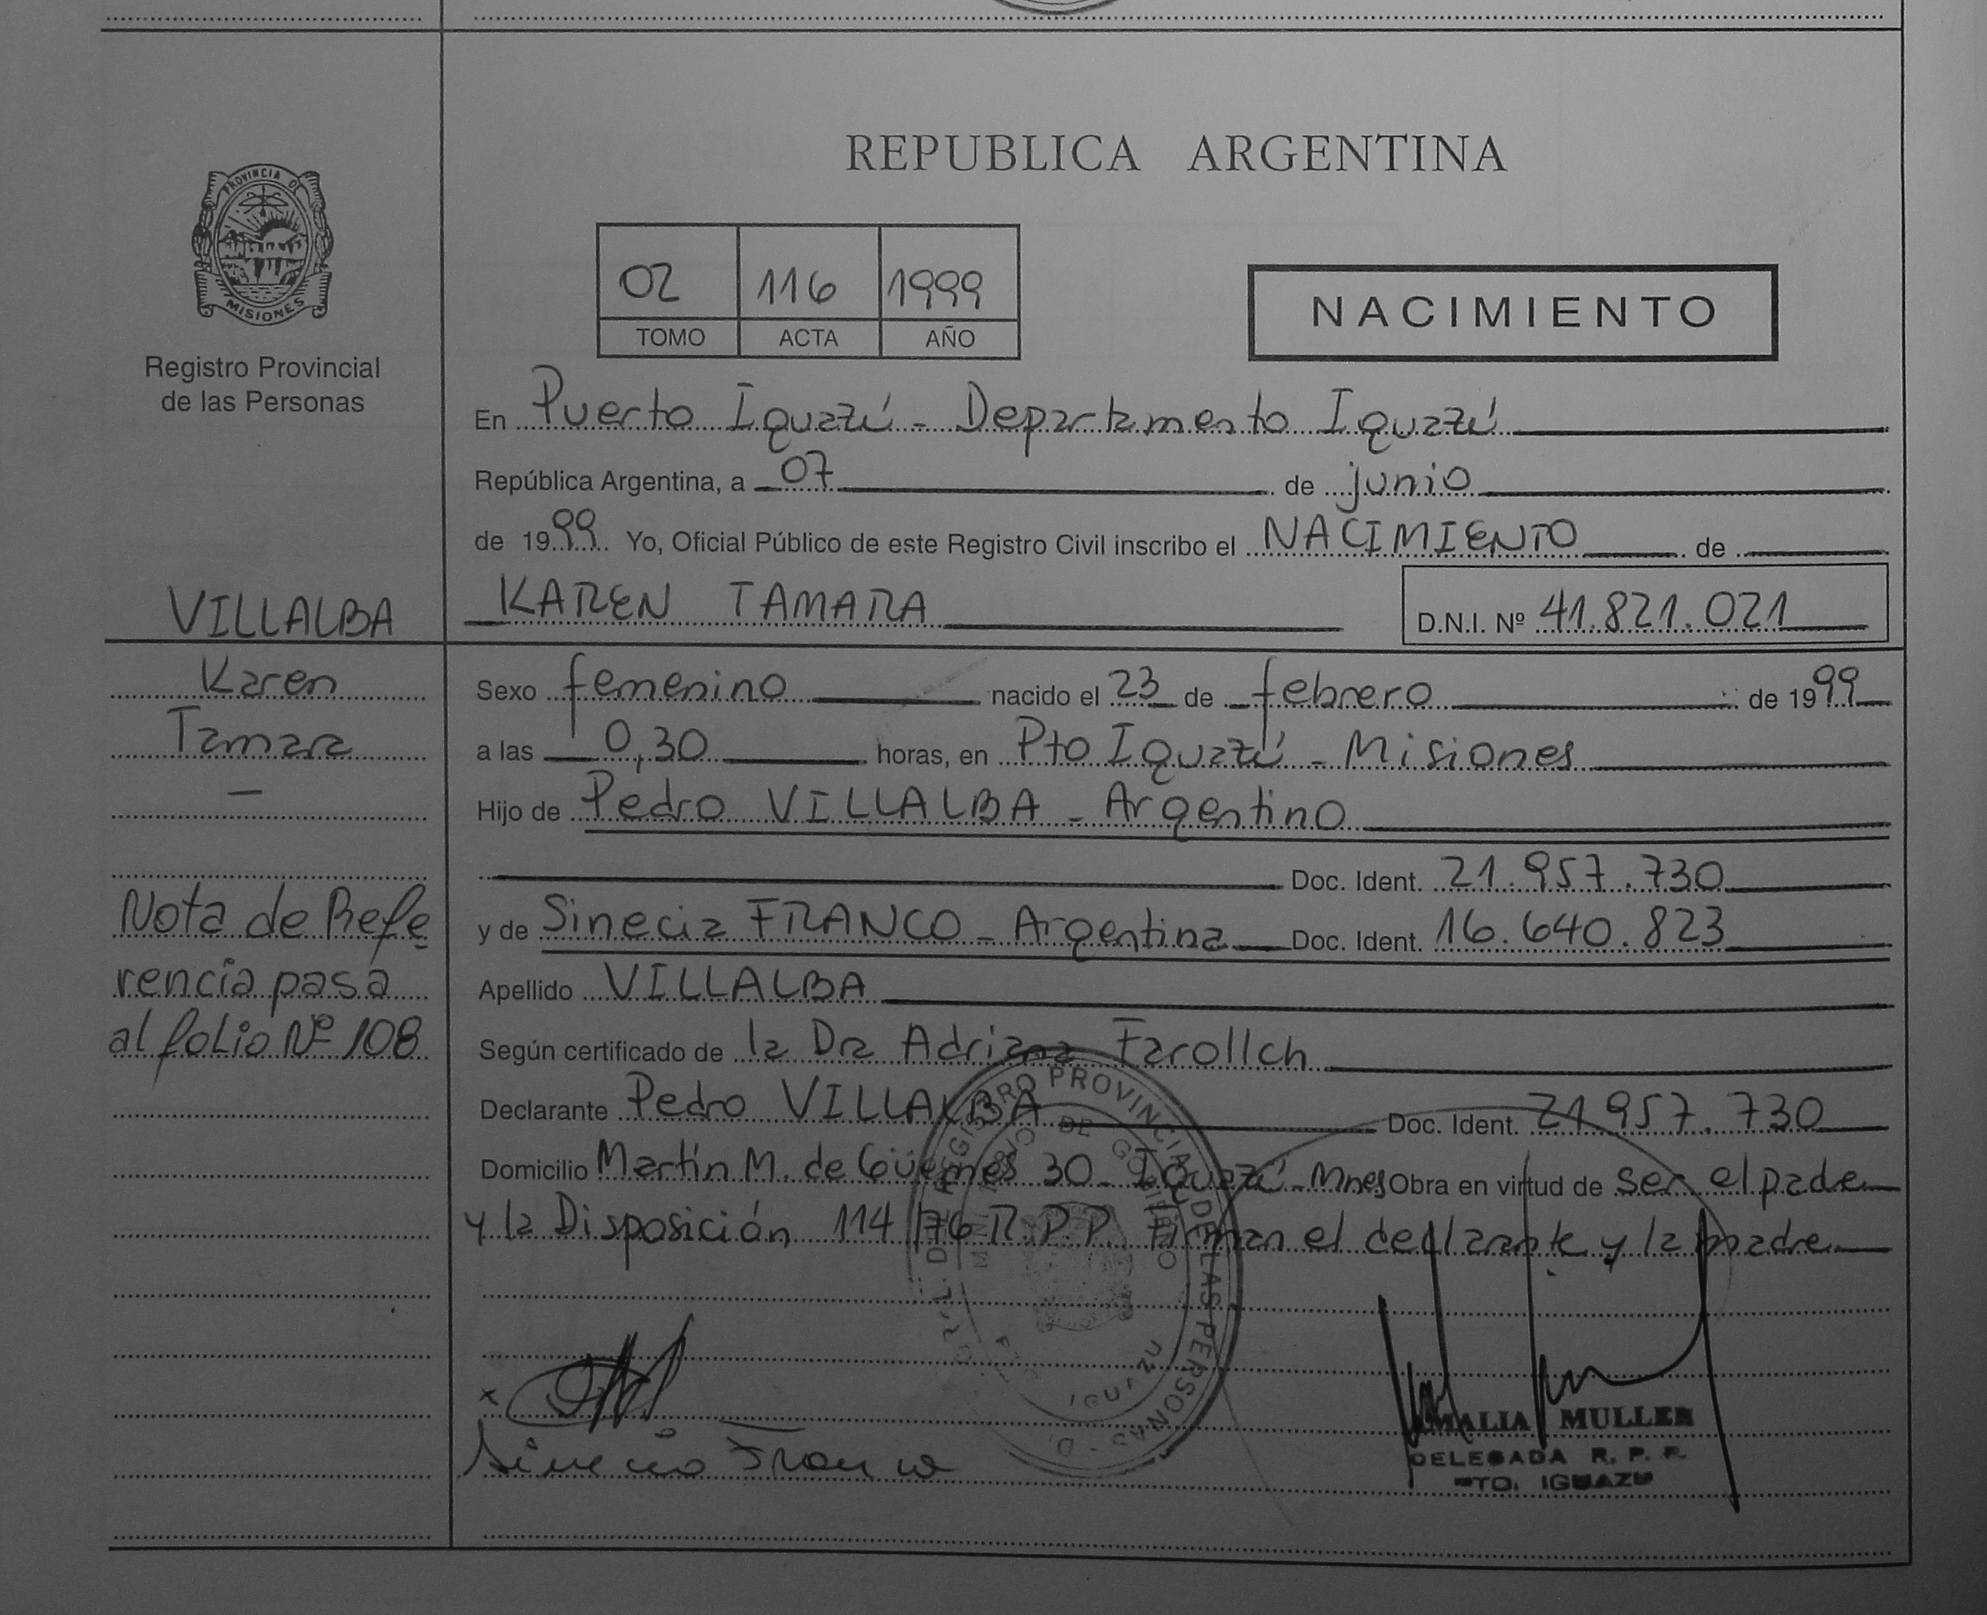 REPUBLICA ARGENTINA
PROVINCIA DE
MISIONES
Registro Provincial
de las Personas
02 116 1999
TOMO ACTA AÑO
NACIMIENTO
En Puerto Iguazú - Departamento Iguazú
República Argentina, a 07 de junio
de 1999 Yo, Oficial Público de este Registro Civil inscribo el NACIMIENTO de
VILLALBA
KAREN TAMARA D.N.I. Nº 41.821.021
Karen
Tamara
—
Nota de Refe
rencia pasa
al folio Nº 108
Sexo femenino nacido el 23 de febrero de 1999
a las 0,30 horas, en Pto Iguazú - Misiones
Hijo de Pedro VILLALBA - Argentino
Doc. Ident. 21.957.730
y de Sinecia FRANCO - Argentina Doc. Ident. 16.640.823
Apellido VILLALBA
Según certificado de la Dra Adriana Farollch
Declarante Pedro VILLALBA Doc. Ident. 21.957.730
Domicilio Martín M. de Güemes 30 - Iguazú - Mnes Obra en virtud de ser el padre
y la Disposición 114/76 R.P.P. Firman el declarante y la madre
REGISTRO PROVINCIAL DE LAS PERSONAS
DE GOBIERNO
IGUAZU
Sinecia Franco
AMALIA MULLER
DELEGADA R. P. P.
PTO. IGUAZU